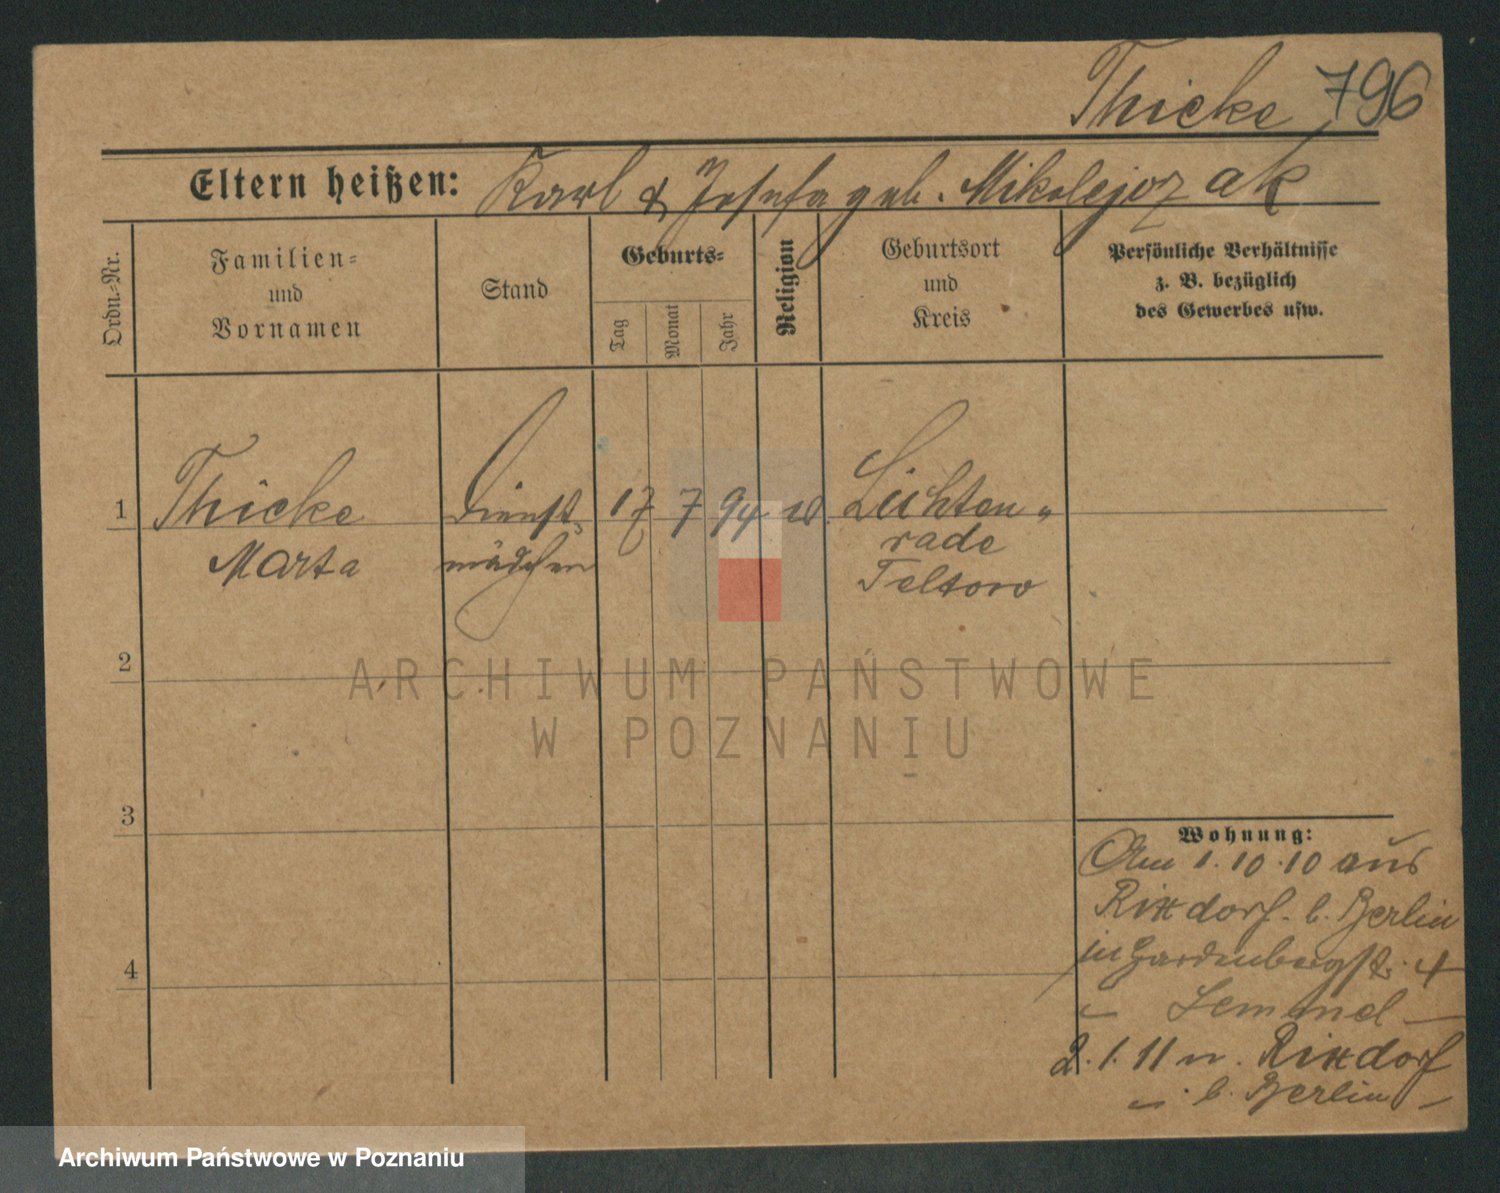 Thicke 796
Eltern heißen: Karl & Josefa geb. Mikolejczak
Ordn.-Nr.
Familien-
und
Vornamen
Stand
Geburts-
Tag
Monat
Jahr
Religion
Geburtsort
und
Kreis
Persönliche Verhältnisse
z. B. bezüglich
des Gewerbes usw.
1 Thicke Dienst- 17 7 94 Lichten-
Marta mädchen rade
Teltow
2
3
4
Wohnung:
Am 1.10.10 aus
Rixdorf b. Berlin
in Hardenbergstr. 4
2.1.11 n. Rixdorf
b. Berlin
ARCHIWUM PAŃSTWOWE
W POZNANIU
Archiwum Państwowe w Poznaniu